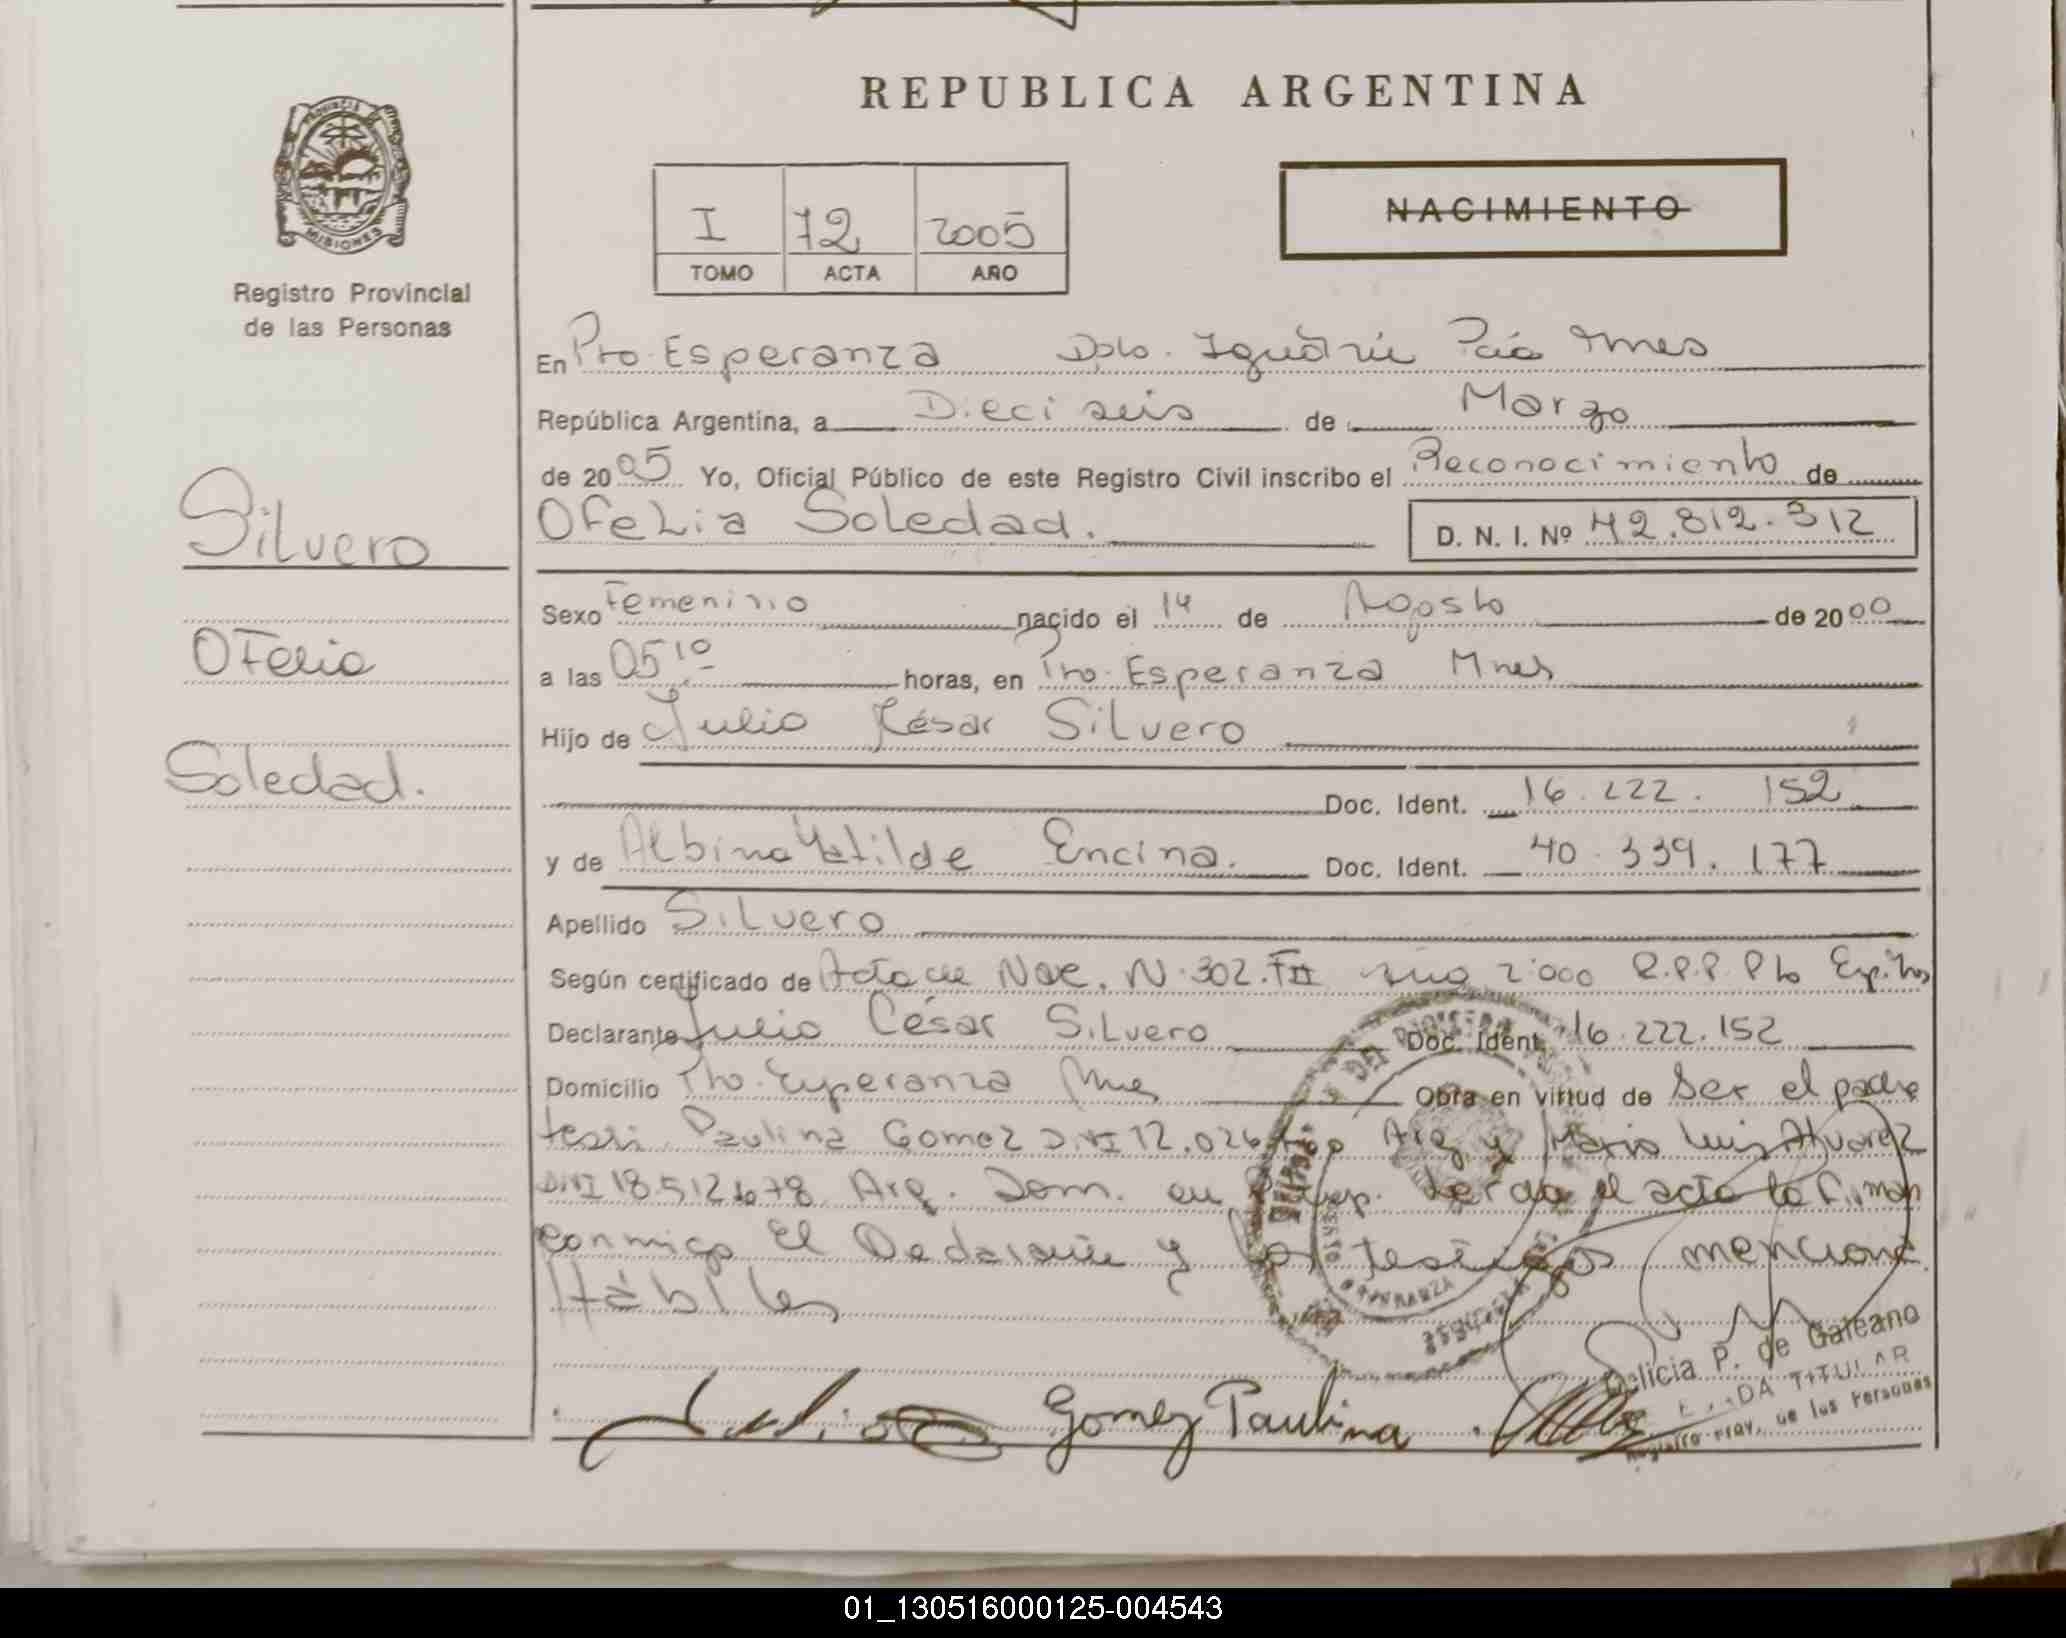 REPUBLICA ARGENTINA
PROVINCIA
MISIONES
Registro Provincial
de las Personas
I 72 2005
TOMO ACTA AÑO
NACIMIENTO
En Pto. Esperanza Dpto. Iguazú Mnes
República Argentina, a Dieciseis de Marzo
de 2005 Yo, Oficial Público de este Registro Civil inscribo el Reconocimiento de
Ofelia Soledad. D. N. I. Nº 42.812.312
Silvero
Ofelia
Soledad.
Sexo Femenino nacido el 14 de Agosto de 2000
a las 05 10 horas, en Pto. Esperanza Mnes
Hijo de Julio César Silvero
Doc. Ident. 16.222.152
y de Albina Matilde Encina. Doc. Ident. 40.339.177
Apellido Silvero
Según certificado de Acta de Nac. N. 302. T II año 2.000 R.P.P. Pto
Declarante Julio César Silvero Doc. Ident. 16.222.152
Domicilio Pto. Esperanza Mnes Obra en virtud de Ser el padre
Paulina Gomez DNI 12.026 Arg y Mario Luis Alvarez
DNI 18.512.678 Arg. Dom. en el acta la firman
conmigo El Declarante y los testigos
Hábiles
ESPERANZA
Julio
Gomez Paulina
P. de Galeano
TITULAR
de las Personas
01_130516000125-004543